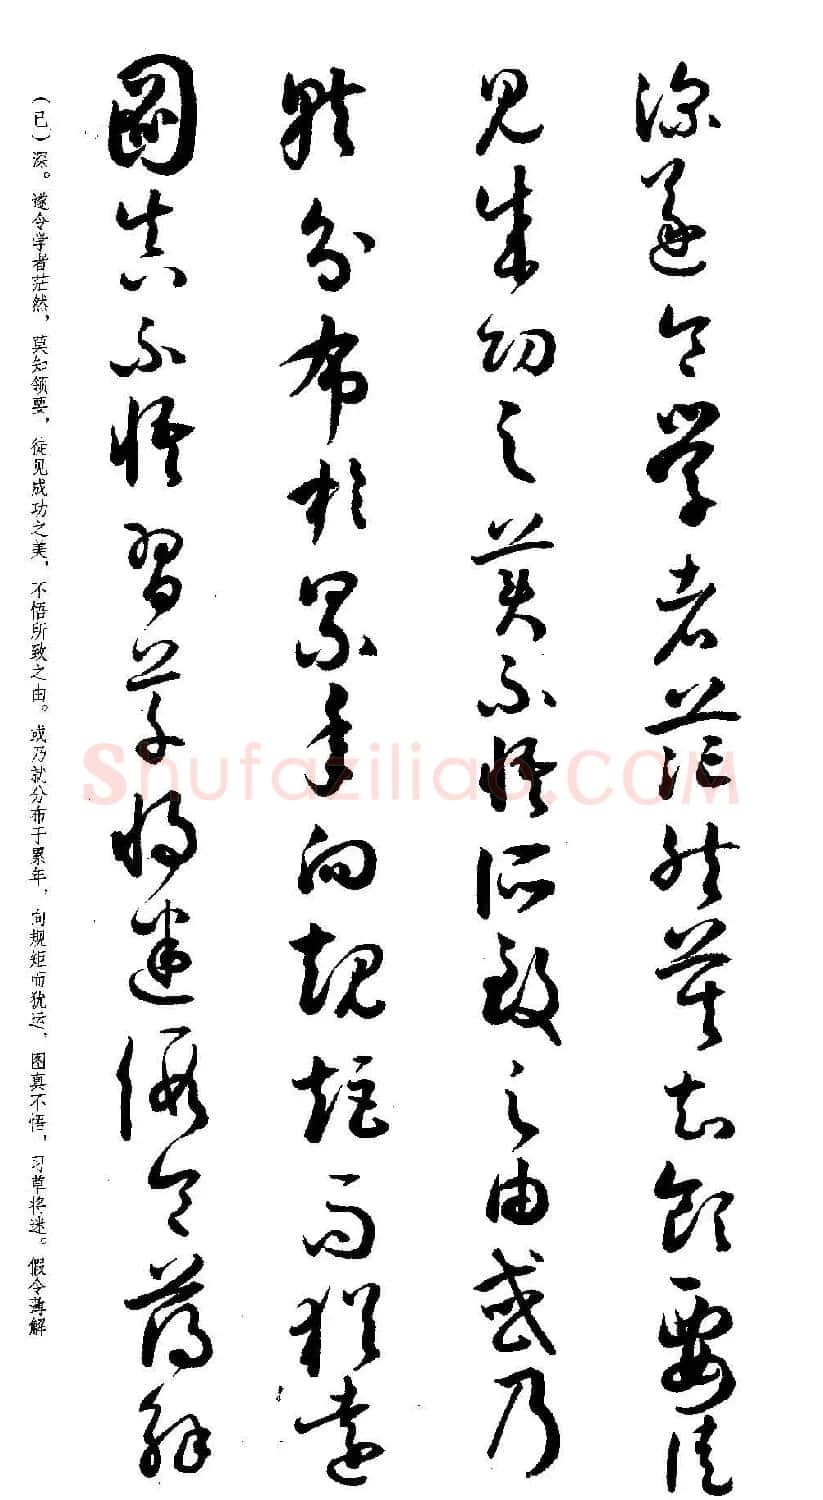 深遂令學者茫然莫知領要徒
見成功之美不悟所致之由或乃
就分布於累年向規矩而猶遠
圖真不悟習草將迷假令薄解
(已)深。遂令学者茫然，莫知领要，徒见成功之美，不悟所致之由。或乃就分布于累年，向规矩而犹远，图真不悟，习草将迷。假令薄解
Shufaziliao.COM